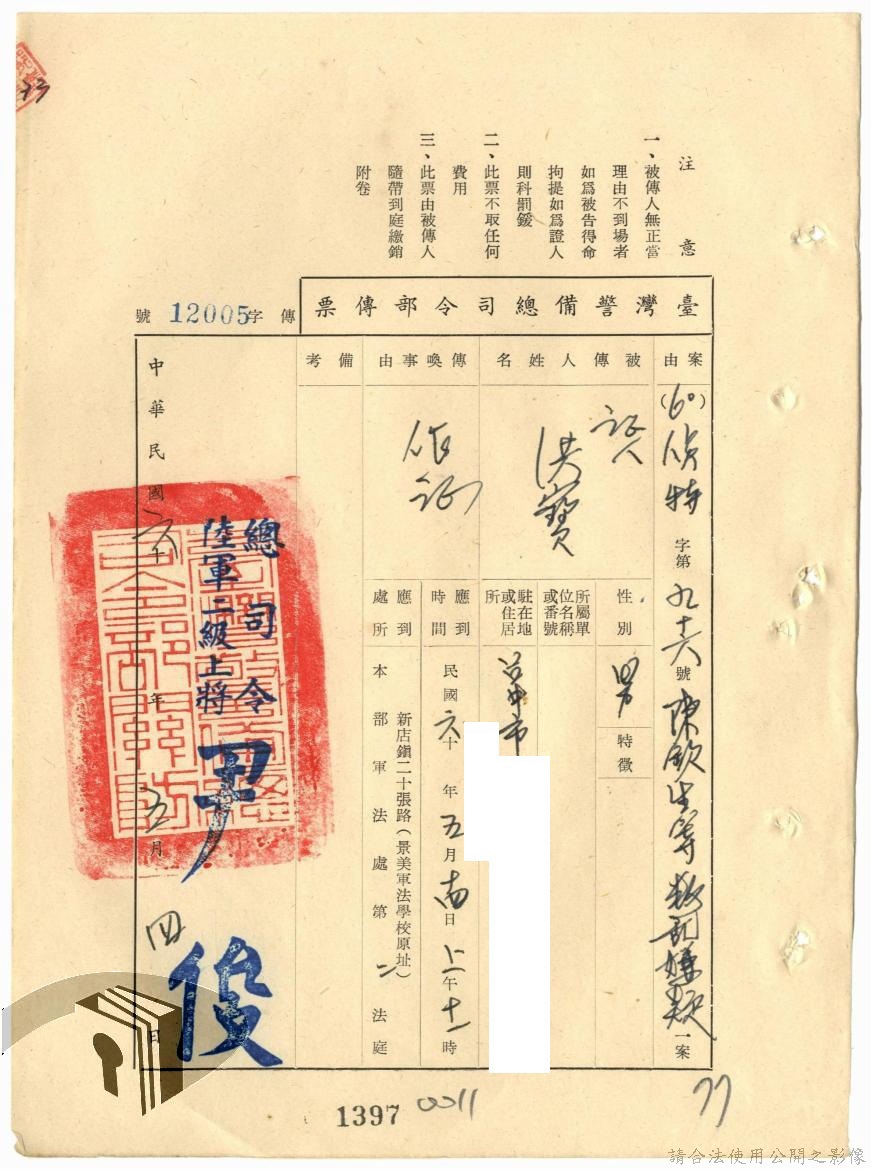 注意
一、被傳人無正當
理由不到場者
如爲被告得命
拘提如爲證人
則科罰鍰
二、此票不取任何
費用
三、此票由被傳人
隨帶到庭繳銷
附卷
臺灣警備總司令部傳票
傳字12005號
案由
(60)偵特字第九十六號陳欽生等叛亂嫌疑一案
被傳人姓名
証人
洪寶
性別
男
特徵
所屬單
位名稱
或番號
駐在地
或住居
所
台中市
傳喚事由
作証
應到
時間
民國六十年五月 日上午十一時
應到
處所
新店鎭二十張路(景美軍法學校原址)
本部軍法處第二法庭
備考
總司令
陸軍二級上將
尹俊
中華民國六十年五月四日
73
1397
0011
77
請合法使用公開之影像